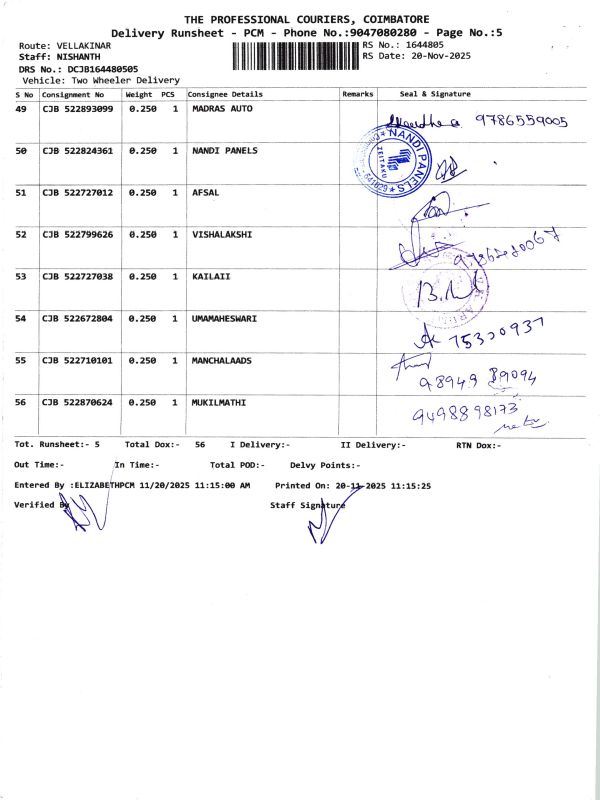 THE PROFESSIONAL COURIERS, COIMBATORE
Delivery Runsheet - PCM - Phone No.:9047080280 - Page No.:5
Route: VELLAKINAR RS No.: 1644805
Staff: NISHANTH RS Date: 20-Nov-2025
DRS No.: DCJB164480505
Vehicle: Two Wheeler Delivery
S No Consignment No Weight PCS Consignee Details Remarks Seal & Signature
49 CJB 522893099 0.250 1 MADRAS AUTO 9786559005
50 CJB 522824361 0.250 1 NANDI PANELS NANDI PANELS ZEITAKU
51 CJB 522727012 0.250 1 AFSAL
52 CJB 522799626 0.250 1 VISHALAKSHI
53 CJB 522727038 0.250 1 KAILAII
54 CJB 522672804 0.250 1 UMAMAHESWARI 75300937
55 CJB 522710101 0.250 1 MANCHALAADS 98949 89094
56 CJB 522870624 0.250 1 MUKILMATHI 9498898173
Tot. Runsheet:- 5 Total Dox:- 56 I Delivery:- II Delivery:- RTN Dox:-
Out Time:- In Time:- Total POD:- Delvy Points:-
Entered By :ELIZABETHPCM 11/20/2025 11:15:00 AM Printed On: 20-11-2025 11:15:25
Verified By Staff Signature